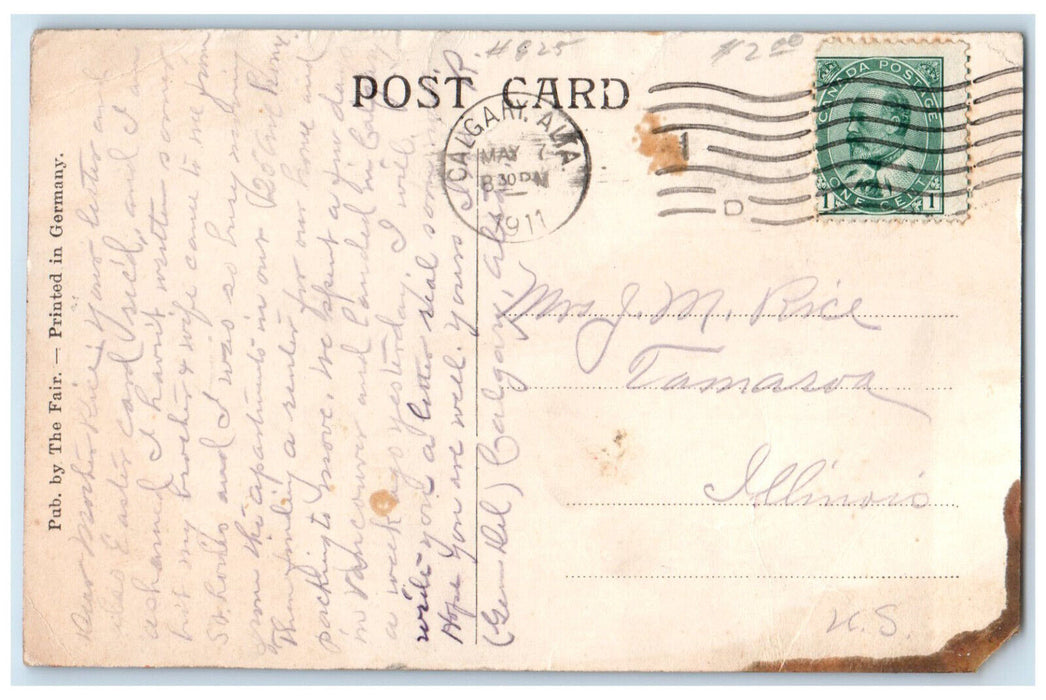 #625
$2.00
POST CARD
CALGARY. ALTA
MAY 7
8 30 PM
1911
1
D
CANADA POSTAGE
ONE CENT
1 1
Pub. by The Fair. — Printed in Germany.
Dear Mother Rice; Your letter and
also Easter card rec'd, and I am
ashamed I havn't written sooner
but my brother & wife came to me from
and I was so busy
the apartments in our
Then finding a renter for our home and
packing to move. We spent a few days
in Vancouver and landed in Calgary
a week ago yesterday. I will
write you a letter real soon.
Hope you are well. Yours
(Genl Del) Calgary, Alta
Mrs J. M. Rice
Tamaroa
Illinois
U.S.